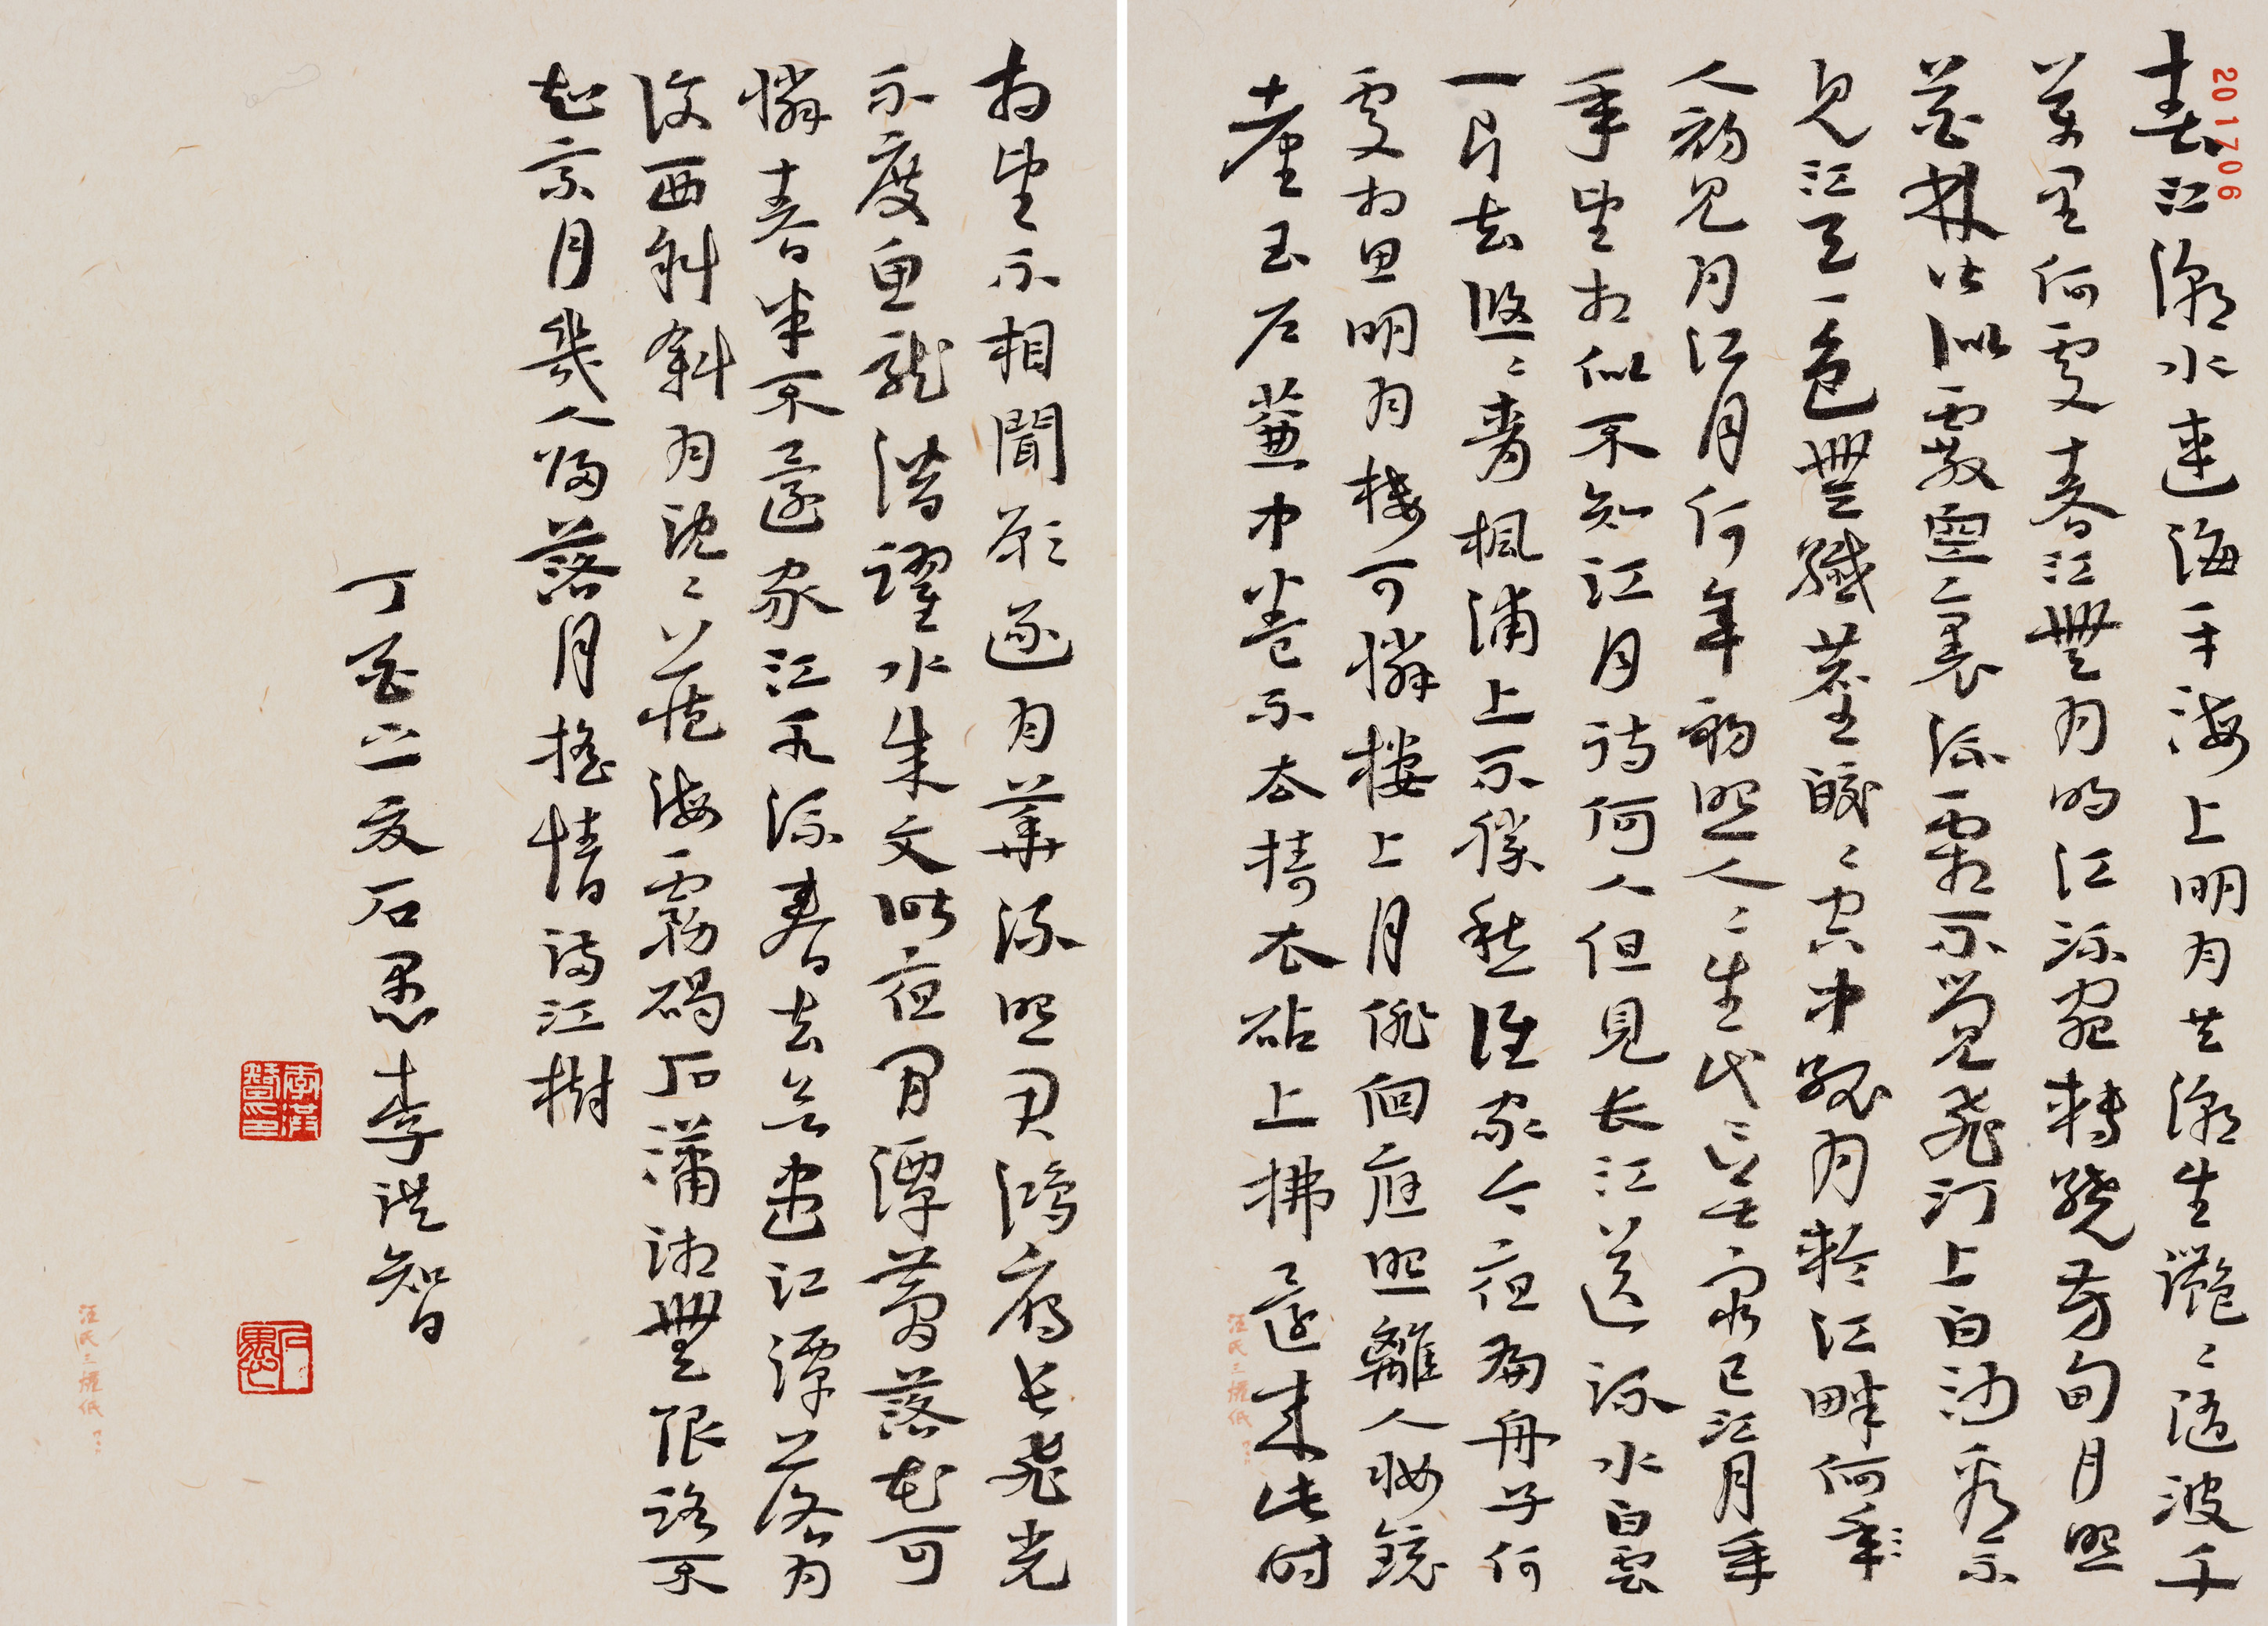 春江潮水連海平海上明月共潮生灩〻隨波千
萬里何處春江無月明江流宛轉繞芳甸月照
花林皆似霰空〻裏流霜不覺飛汀上白沙看不
見江天一色無纖塵皎〻空中孤月輪江畔何年
人初見月江月何年初照人〻生代〻無窮已江月年
年望相似不知江月待何人但見長江送流水白雲
一片去悠〻青楓浦上不勝愁誰家今夜扁舟子何
處相思明月樓可憐樓上月徘徊應照離人妝鏡
臺玉戶簾中卷不去擣衣砧上拂還來此時
相望不相聞願逐月華流照君鴻雁長飛光
不度魚龍潛躍水成文昨夜閒潭夢落花可
憐春半不還家江水流春去欲盡江潭落月
復西斜斜月沉〻藏海霧碣石瀟湘無限路不
知乘月幾人歸落月搖情滿江樹
丁酉立夏石愚李洪智
李洪智印
石愚
201706